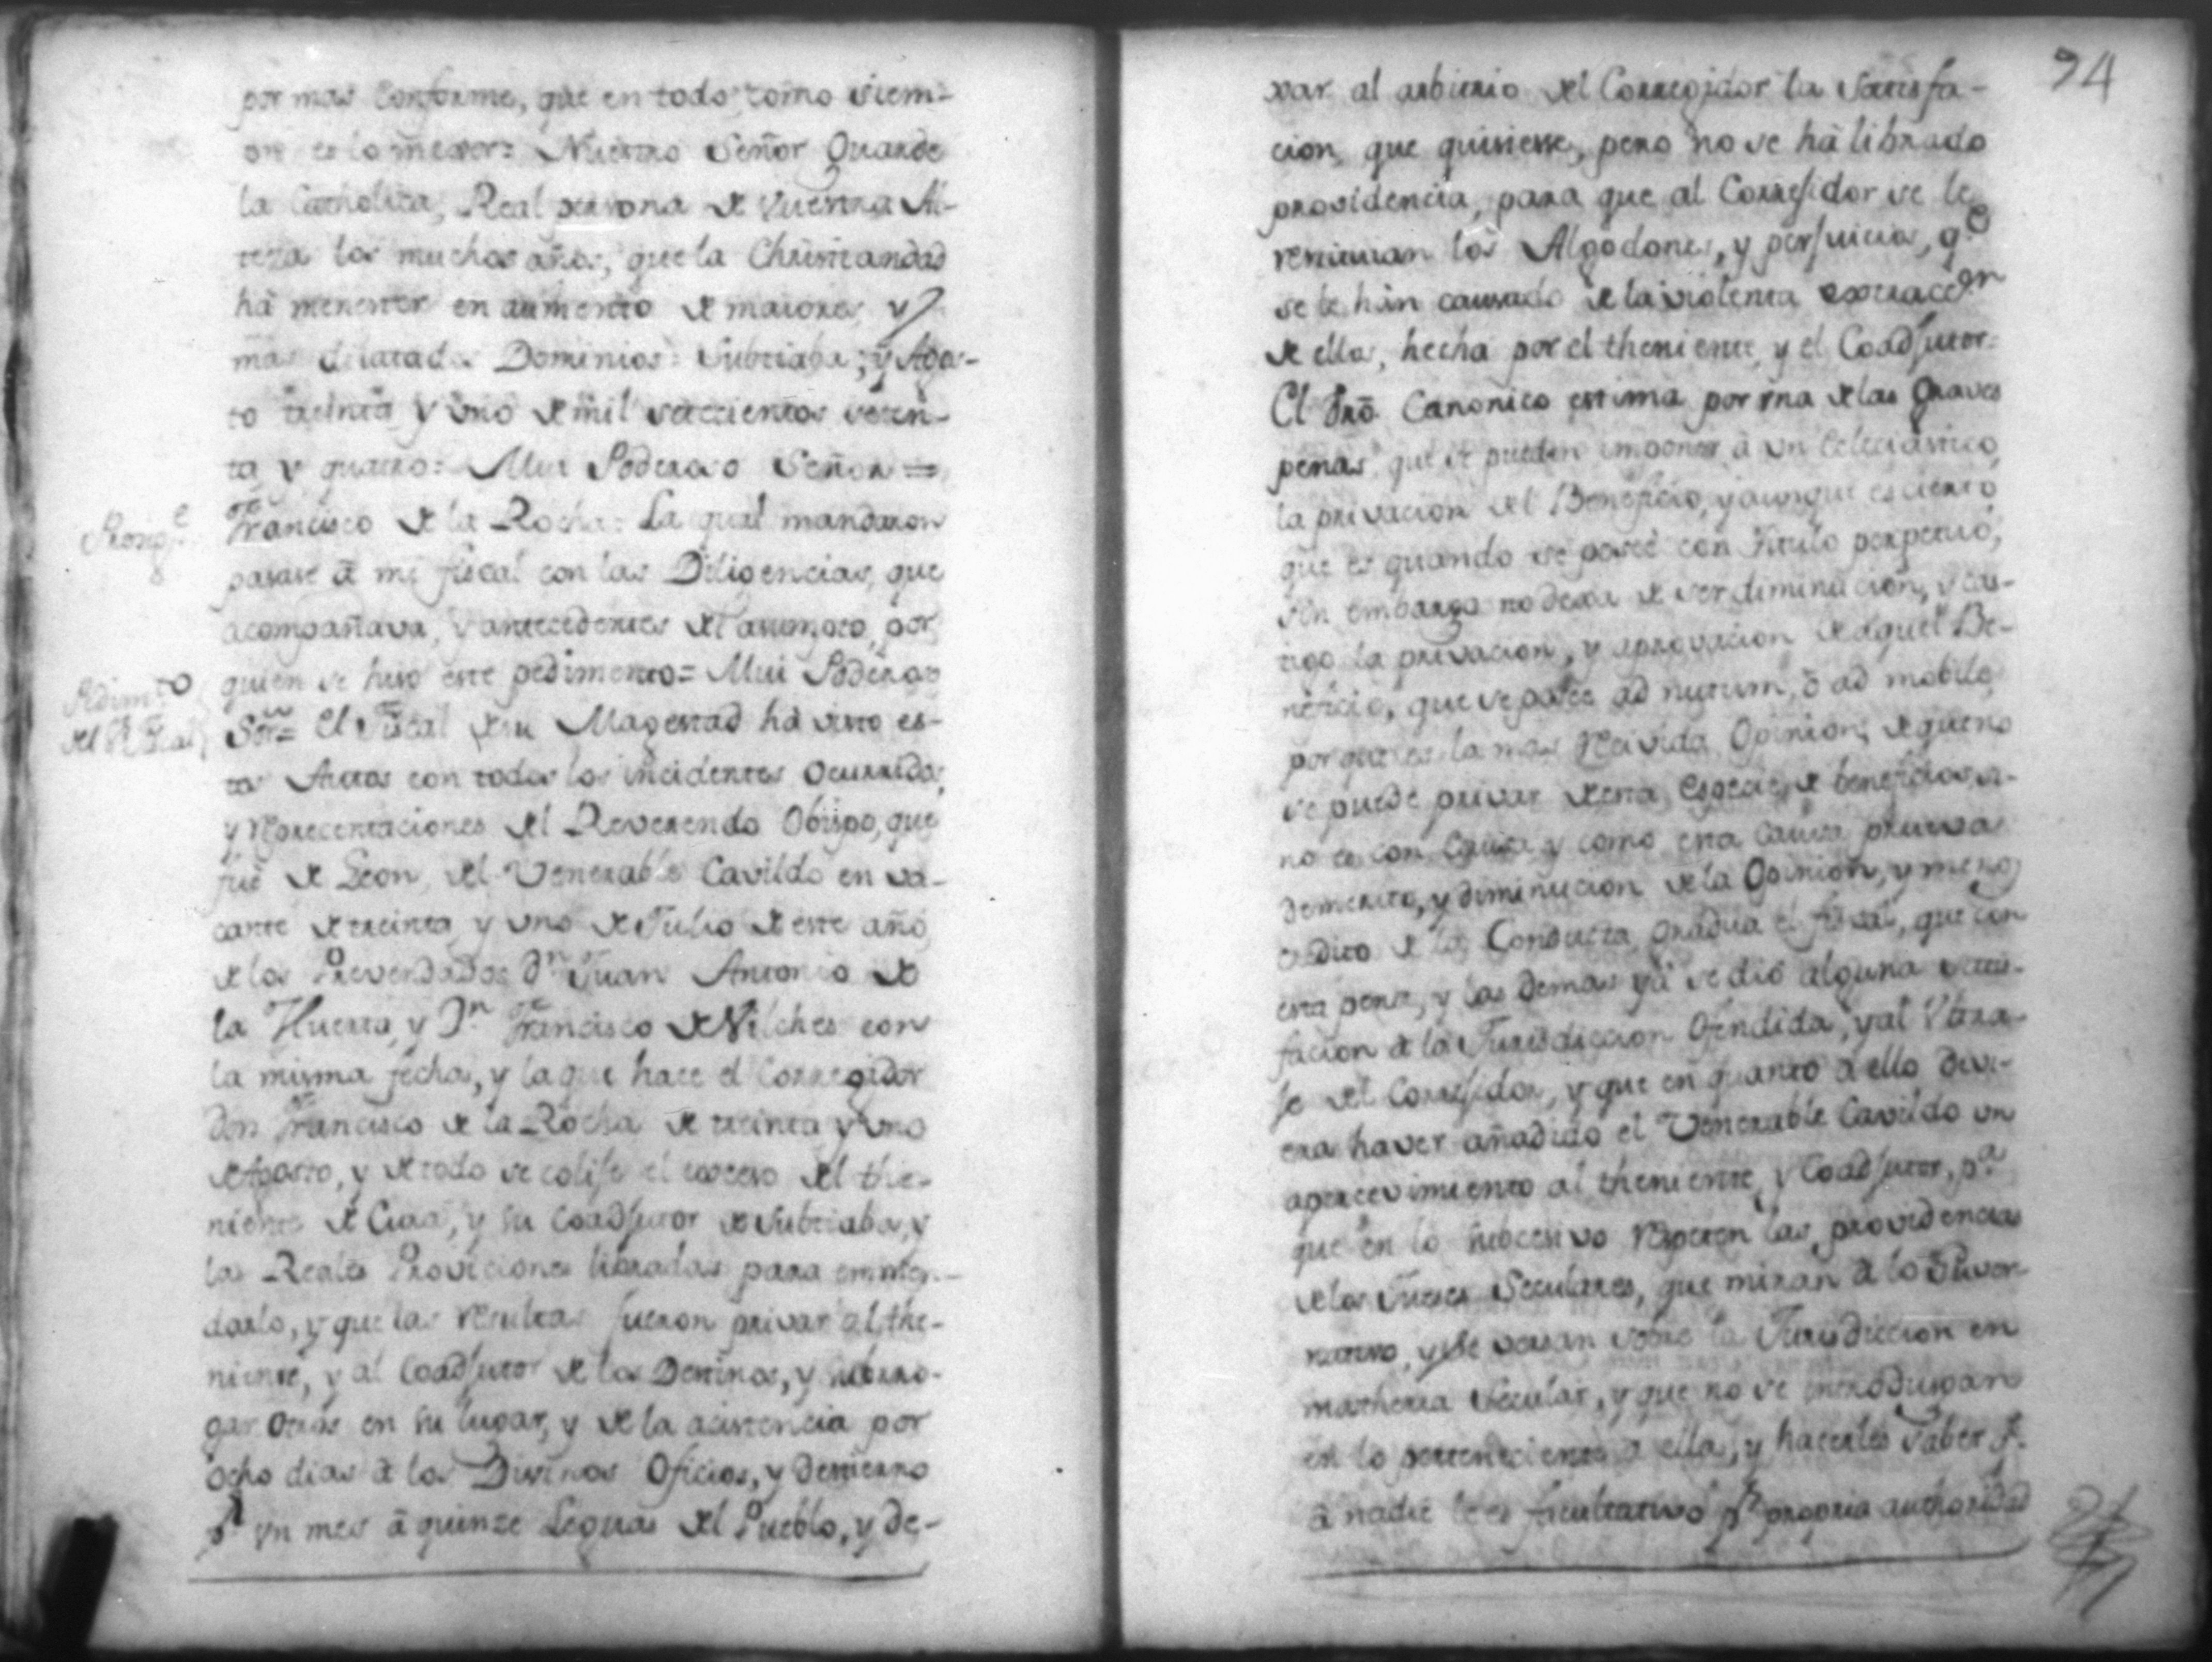 por mas conforme, que en todo como siem-
pre es lo mejor= Nuestro Señor Guarde
la Catholica, Real persona de Vuestra Al-
teza los muchos años, que la Christiandad
há menester en aumento de maiores, y
mas dilatados Dominios= Subtiaba, y Agos-
to treinta y uno de mil setecientos seten-
ta y quatro= Mui Poderoso Señor=
Francisco de la Rocha= La qual mandaron
Prosig.e
pasase â mi fiscal con las Diligencias, que
acompañava, y antecedentes del asumpto, por
quien se hiso este pedimento= Mui Poderoso
Pedim.to
del Sr. Fiscal
Sor= El Fiscal de su Magestad há visto es-
tos Autos con todos los incidentes ocurridos,
y Representaciones del Reverendo Obispo, que
fué de Leon, del Venerable Cavildo en va-
cante de treinta y uno de Julio de este año,
de los Prevendados Dn. Juan Antonio de
la Huerta, y Dn. Francisco de Vilches con
la misma fecha, y la que hace el Corregidor
Don Francisco de la Rocha de treinta y uno
de Agosto, y de todo se colije el exceso del the-
niente de Cura, y su Coadjutor de Subtiaba, y
las Reales Proviciones libradas para emmen-
darlo, y que las resultas fueron privar al the-
niente, y al Coadjutor de los Destinos, y subrro-
gar otros en su lugar, y de la acistencia por
ocho dias â los Divinos Oficios, y destierro
pr. un mes â quinze Leguas del Pueblo, y de-
94
xar al arbitrio del Corregidor la satisfa-
cion, que quisiesse, pero no se há librado
providencia, para que al Corregidor se le
restituian los Algodones, y perjuicios, q.e
se le hán causado de la violenta extracc.on
de ellos, hecha por el theniente, y el Coadjutor=
El Dro. Canonico estima por una de las graves
penas que se pueden imponer â un Eclesiastico,
la privacion del Beneficio, y aunque es cierto
que es quando se poseé con titulo perpetuó,
sin embargo no dexa de ser diminucion, y cas-
tigo la privacion, y aprovacion de aquel Be-
neficio, que se poseé ad nutum, ô ad mobile,
porque es la mas Recivida Opinion, de que no
se puede privar de esta especie de beneficios, si-
no es con Causa, y como esta causa prueva
demerito, y diminucion de la Opinion, y menos
credito de la Conducta, gradua el fiscal, que con
esta pena, y las demas yá se dió alguna satis-
facion â la Jurisdiccion Ofendida, y al Ultra-
je del Corregidor, y que en quanto â ello devi-
era haver añadido el Venerable Cavildo un
apercevimiento al theniente, y Coadjutor, p.a
que en lo subcesivo respeten las providencias
de los Jueses Seculares, que miran â lo Guver-
nativo, y se versan sobre la Jurisdiccion en
matheria Secular, y que no se introduscan
en lo perteneciente â ella, y hacerles saber q.
â nadie le es facultativo pr. propria authoridad